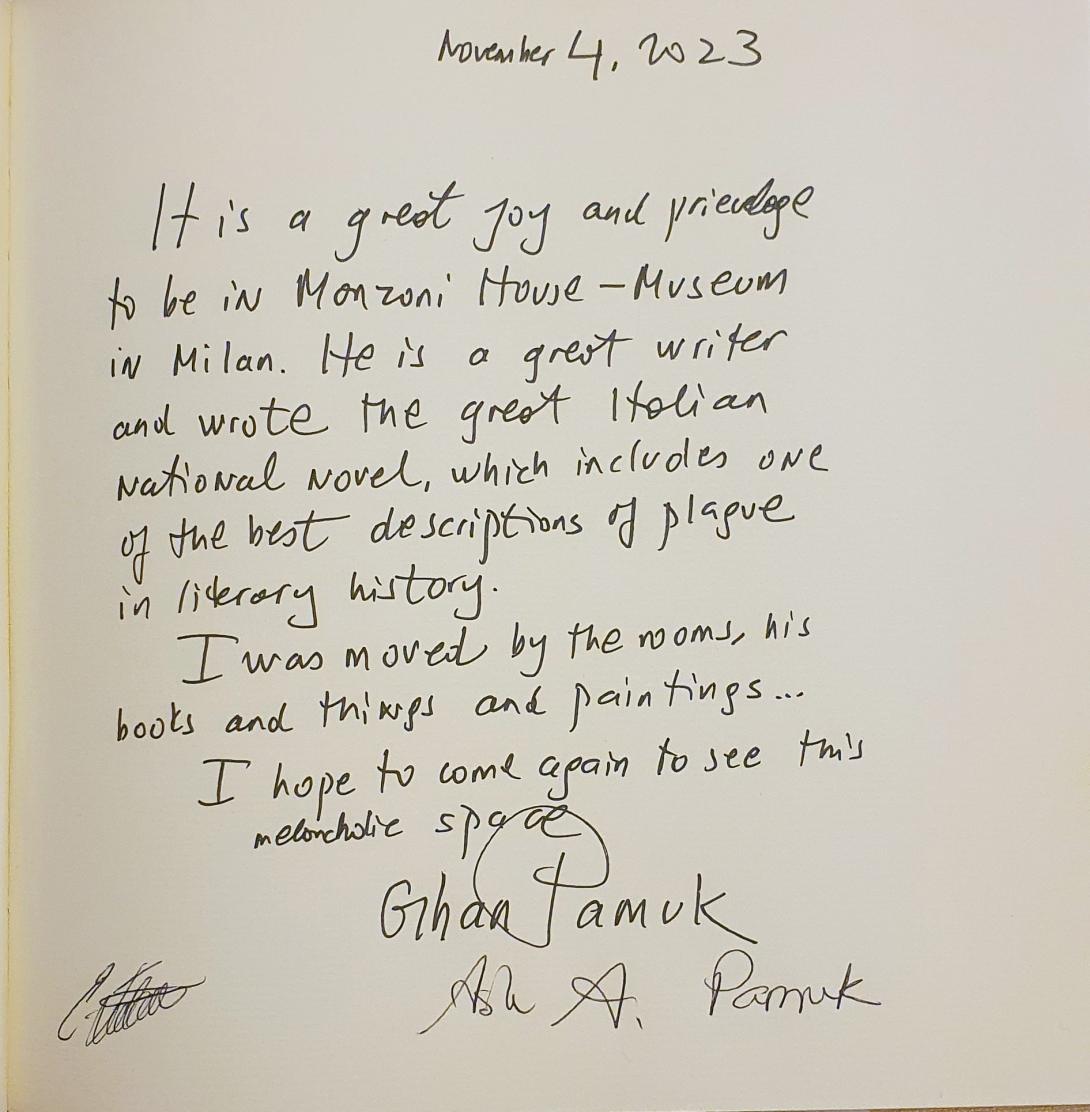 November 4, 2023
It is a great joy and prievelege
to be in Manzoni House - Museum
in Milan. He is a great writer
and wrote the great Italian
national novel, which includes one
of the best descriptions of plague
in literary history.
I was moved by the rooms, his
books and things and paintings...
I hope to come again to see this
meloncholic space
Orhan Pamuk
Aslı A. Pamuk